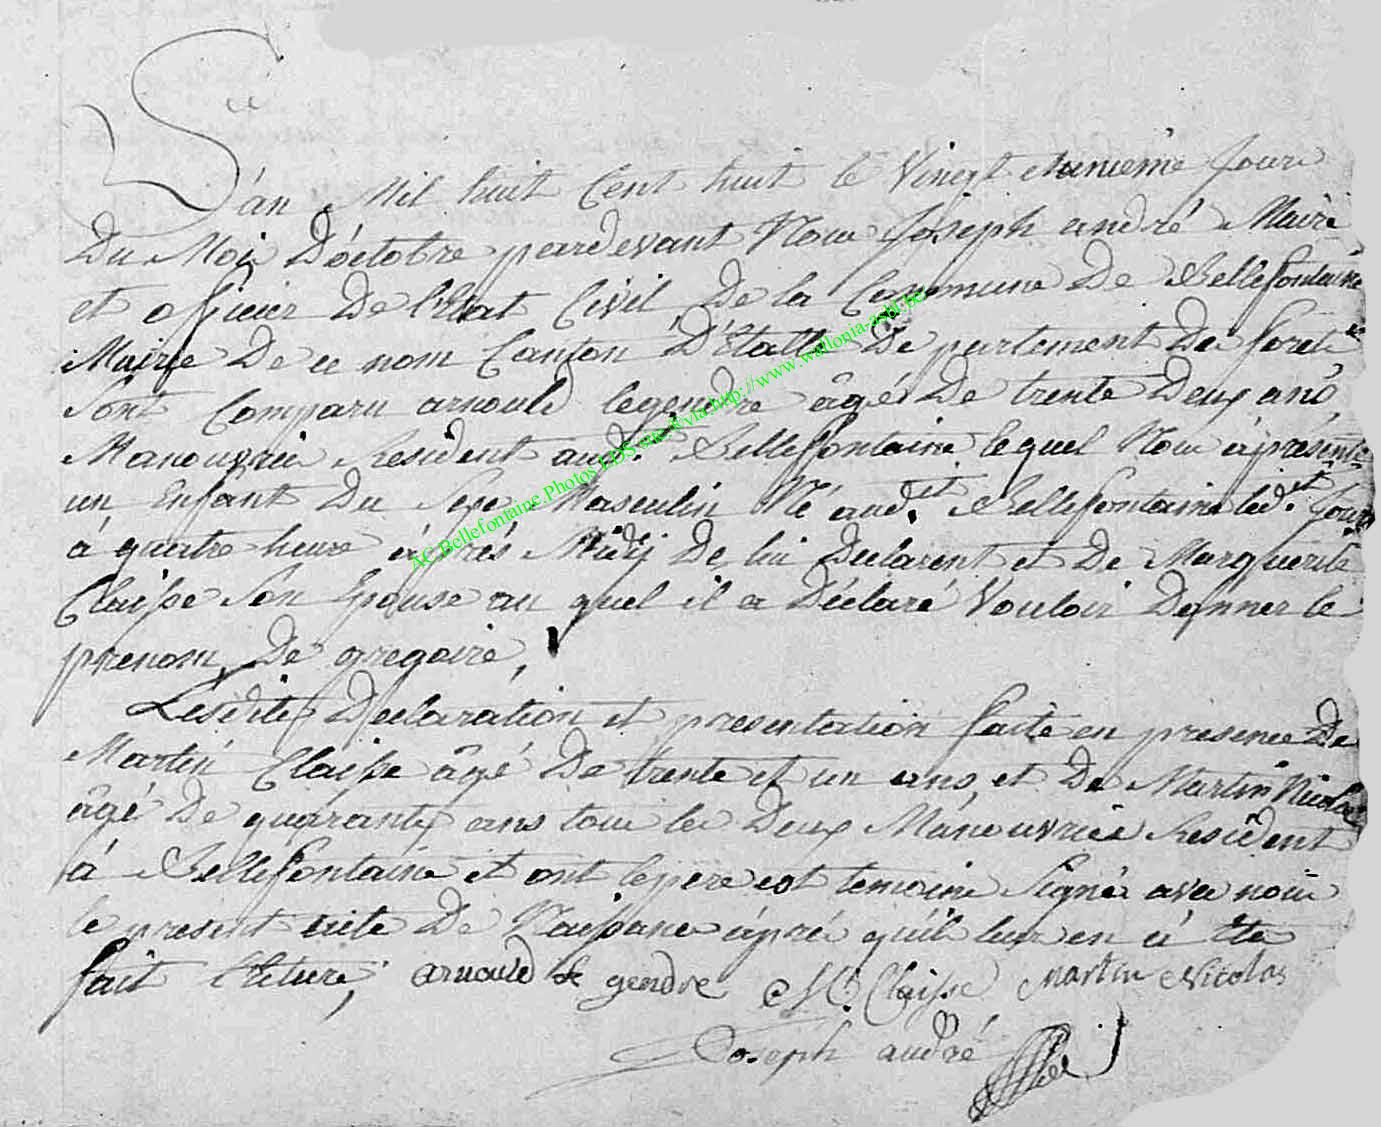 L'an Mil huit Cent huit le Vingt unieme Jour
Du Mois D'octobre pardevant Nous Joseph andré Maire
et officier De l'Etat Civil De la Commune De Bellefontaine
Mairie De ce nom Canton D'Etalle Departement Des forets
Sont Comparu arnould legendre âgé De trente Deux ans
Manouvrier Resident aud.t Bellefontaine lequel Nous à présenté
un Enfant Du Sexe Masculin Né aud.t Bellefontaine led.t Jour
à quatre heure après Midy De lui Declarent et De Marguerite
Claisse Son Epouse au quel il a Déclaré Vouloir Donner le
prenom De gregoire,
Lesdites Declaration et presentation faite en présence De
Martin Claisse âgé De trente et un ans, et De Martin Nicolas
âgé De quarante ans tous les Deux Manouvrier Resident
à Bellefontaine et ont le pere et temoins Signés avec nous
le present acte De Naissance après qu'il leur en à été
fait lecture, arnould le gendre M Claisse Martin Nicolas
Joseph andré
AC Bellefontaine Photos LDS site Wvla http://www.wallonia-asbl.be